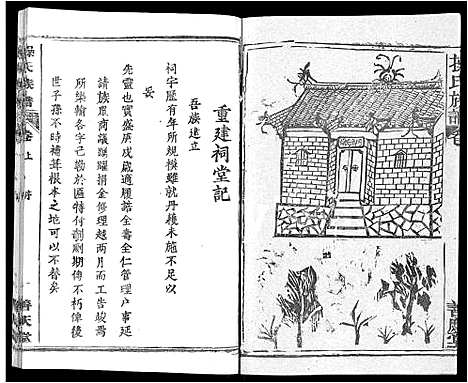 重建祠堂記
吾族建立
祠宇歷有年所規模雖就丹雘未施不足以
妥
先靈也實盛庚戌歲適履誥全壽全仁管理户事延
請族眾商議踴躍捐金修理越兩月而工告竣焉
所樂輸各字已勒於匾特付剞劂期傳不朽俾後
世子孫不時補葺根本之地可以不替矣
操氏族譜
卷上
善慶堂